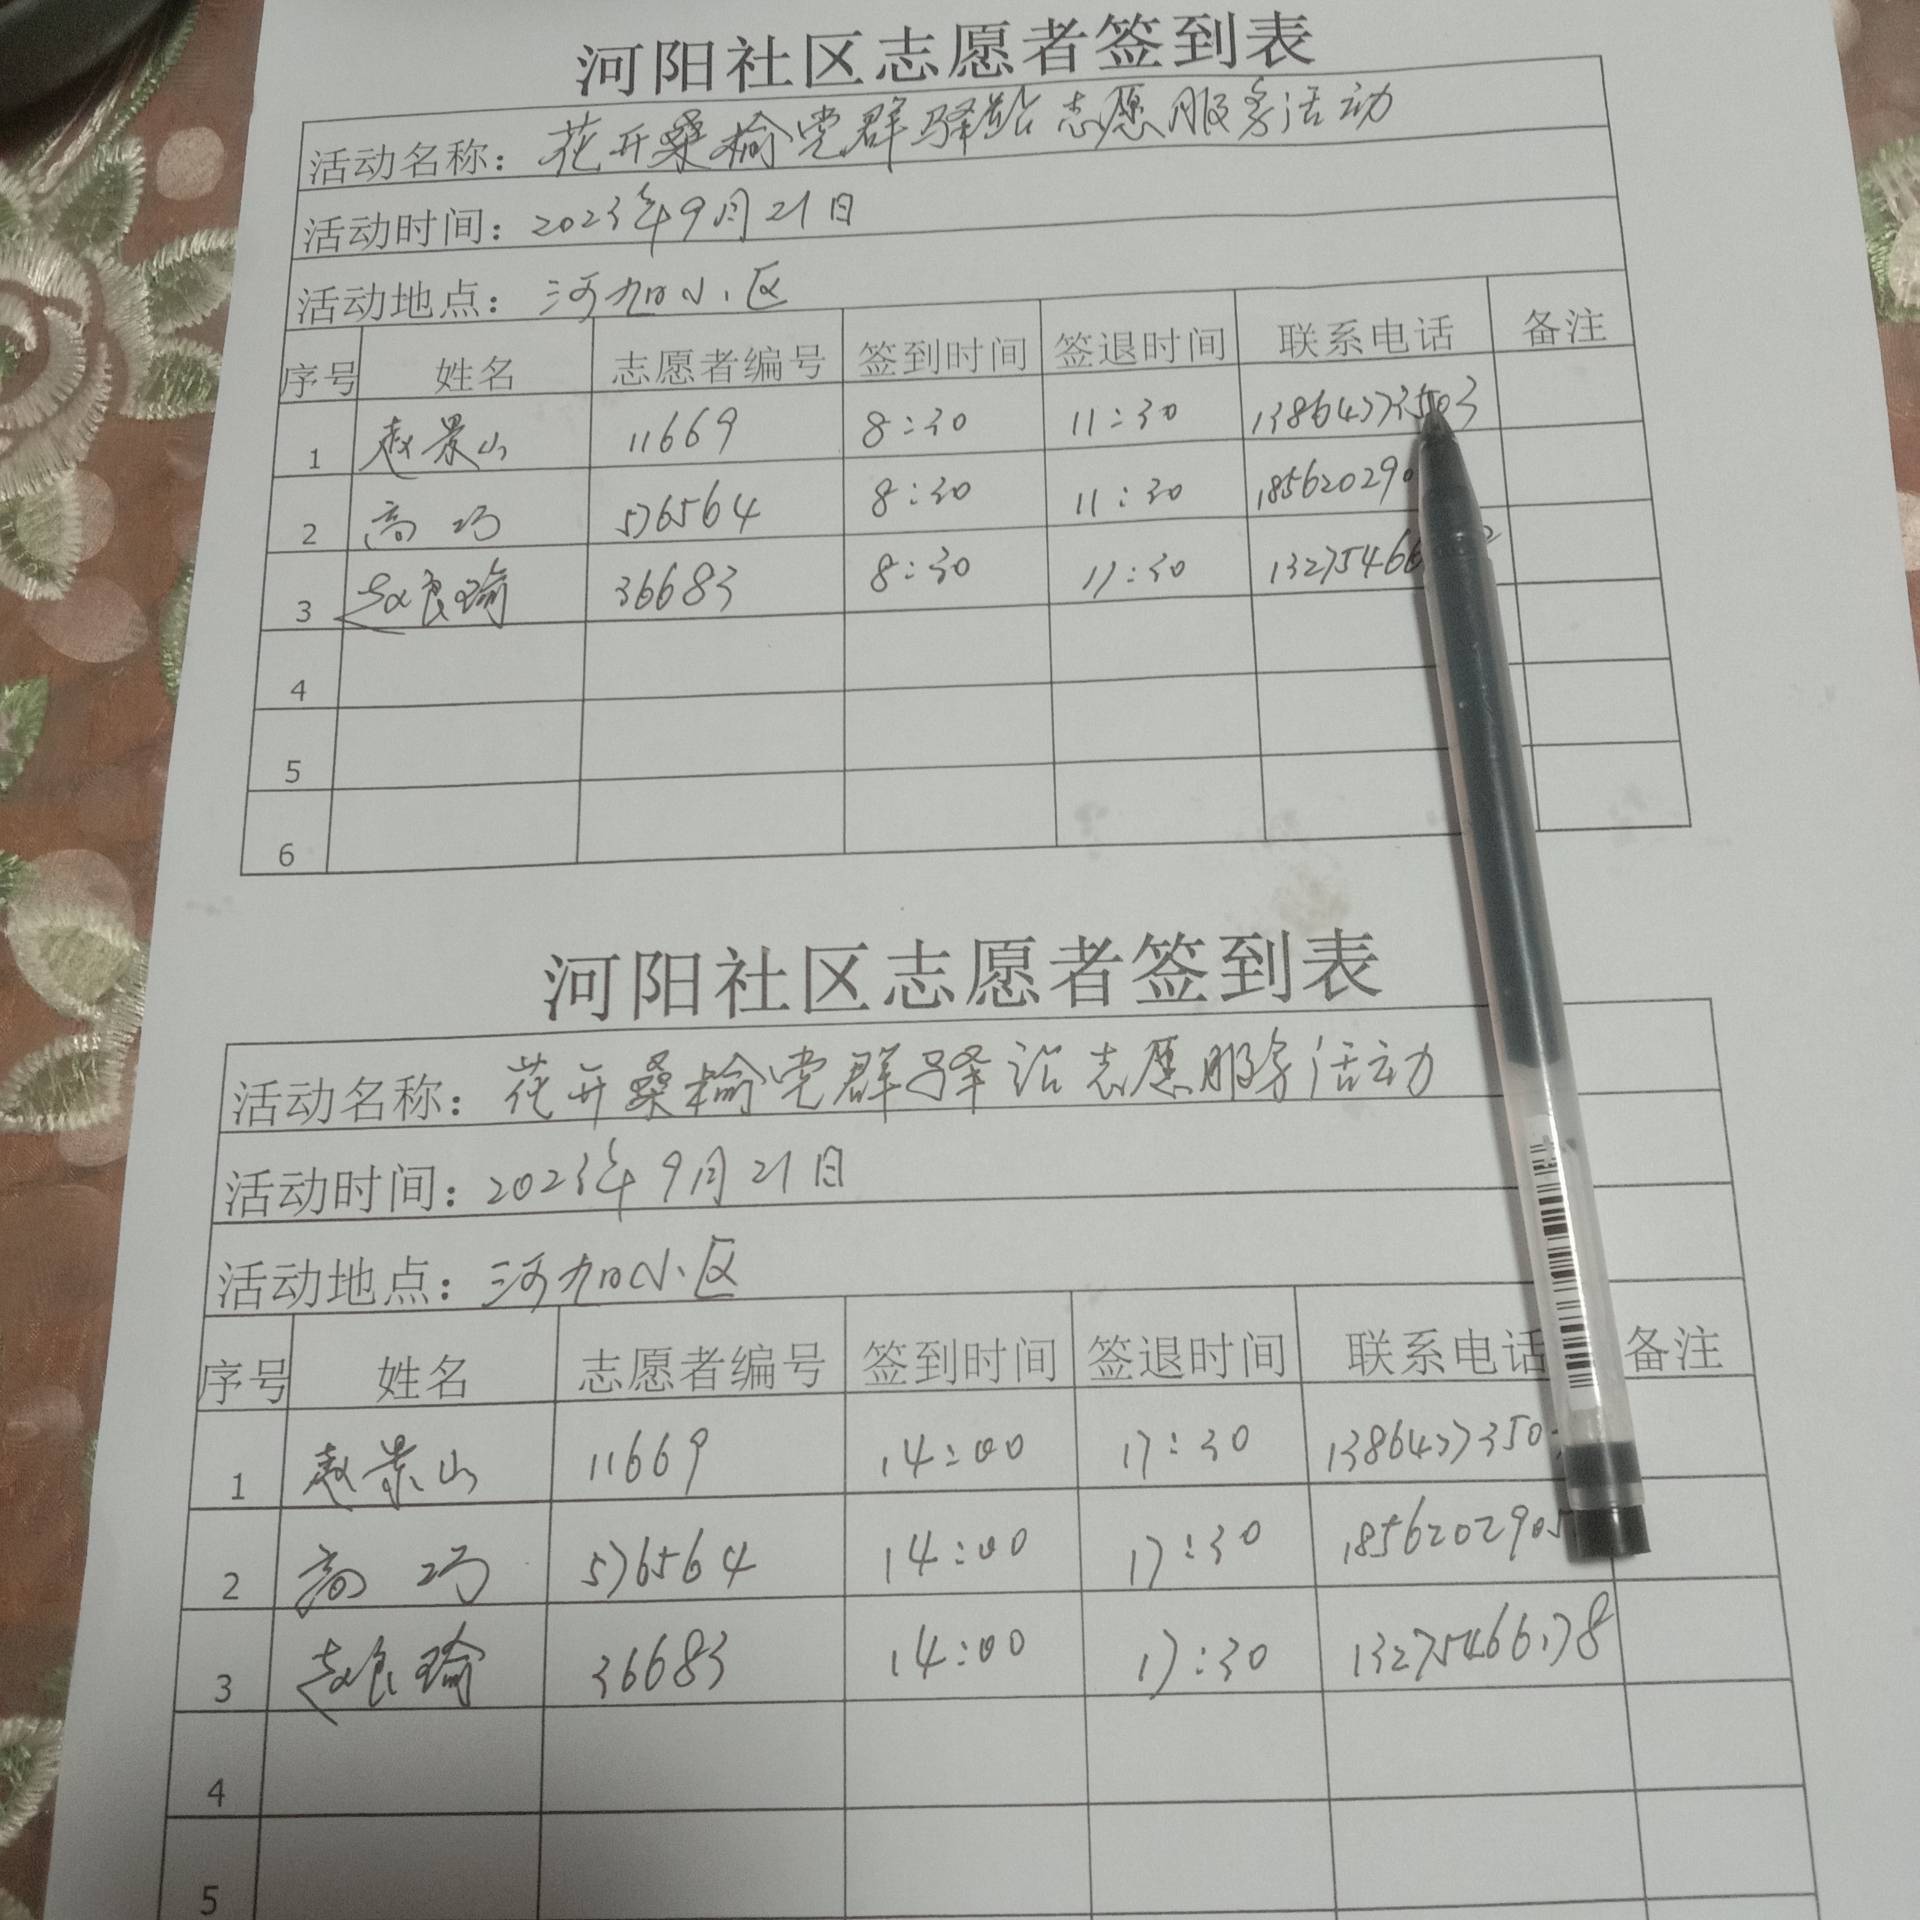 河阳社区志愿者签到表
活动名称：花开桑榆党群驿站志愿服务活动
活动时间：2023年9月21日
活动地点：河加小区
序号 姓名 志愿者编号 签到时间 签退时间 联系电话 备注
1 赵景山 11669 8:30 11:30 13864773503
2 高巧 576564 8:30 11:30 185620290
3 赵良瑜 36683 8:30 11:30 13275466
4
5
6
河阳社区志愿者签到表
活动名称：花开桑榆党群驿站志愿服务活动
活动时间：2023年9月21日
活动地点：河加小区
序号 姓名 志愿者编号 签到时间 签退时间 联系电话 备注
1 赵景山 11669 14:00 17:30 1386477350
2 高巧 576564 14:00 17:30 1856202905
3 赵良瑜 36683 14:00 17:30
4
5